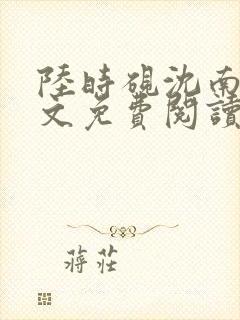 陸時硯沈南
文免費閱讀
蔣莊